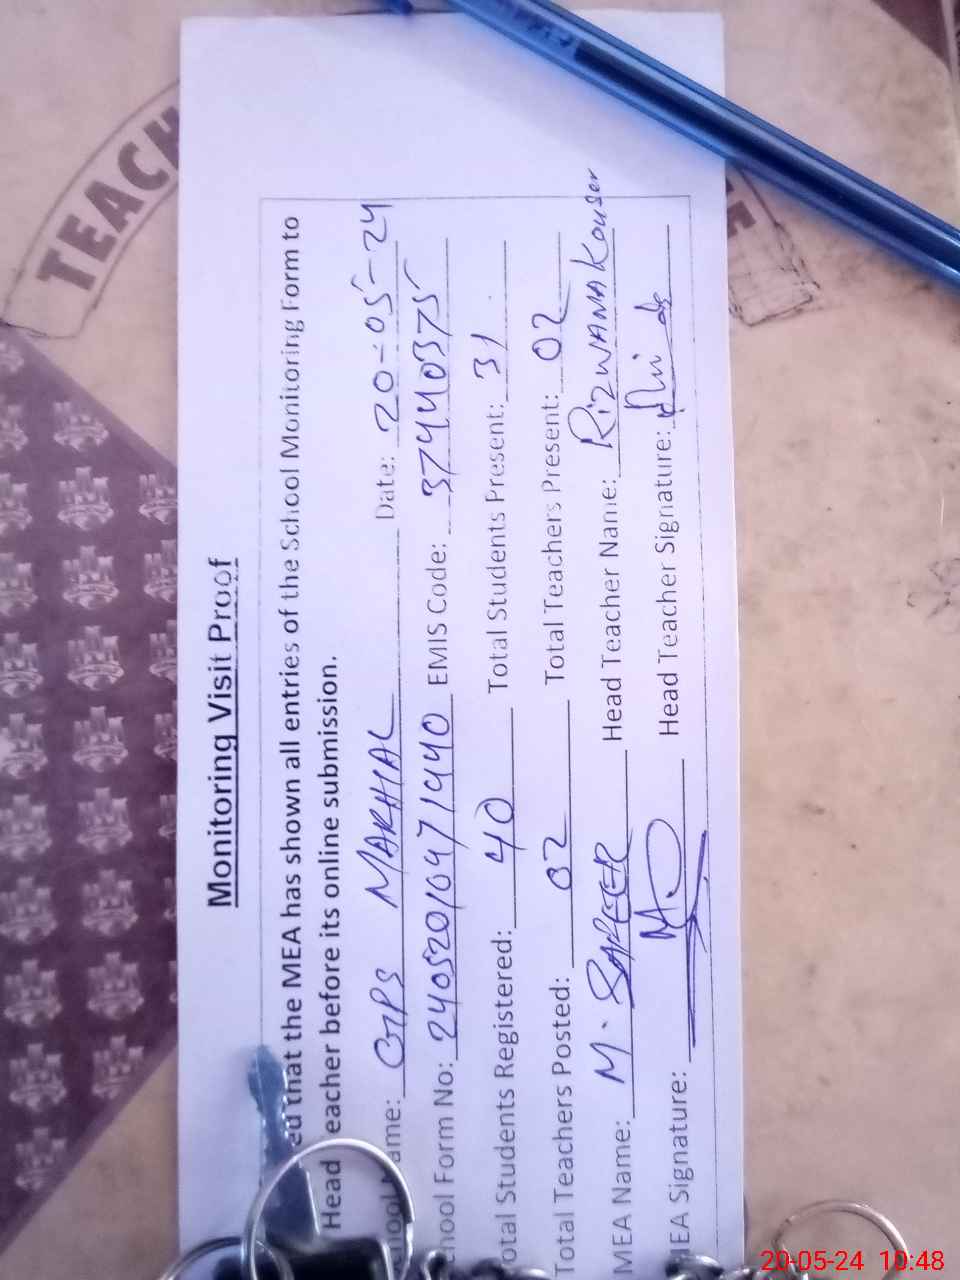 TEACH
Monitoring Visit Proof
ed that the MEA has shown all entries of the School Monitoring Form to
Head eacher before its online submission.
ame: GPS MARHAL Date: 20-05-24
chool Form No: 24052010471440 EMIS Code: 37440375
otal Students Registered: 40 Total Students Present: 31
Total Teachers Posted: 02 Total Teachers Present: 02
MEA Name: M. SAFEER Head Teacher Name: RizWANA Kouser
MEA Signature: Head Teacher Signature:
20-05-24 10:48